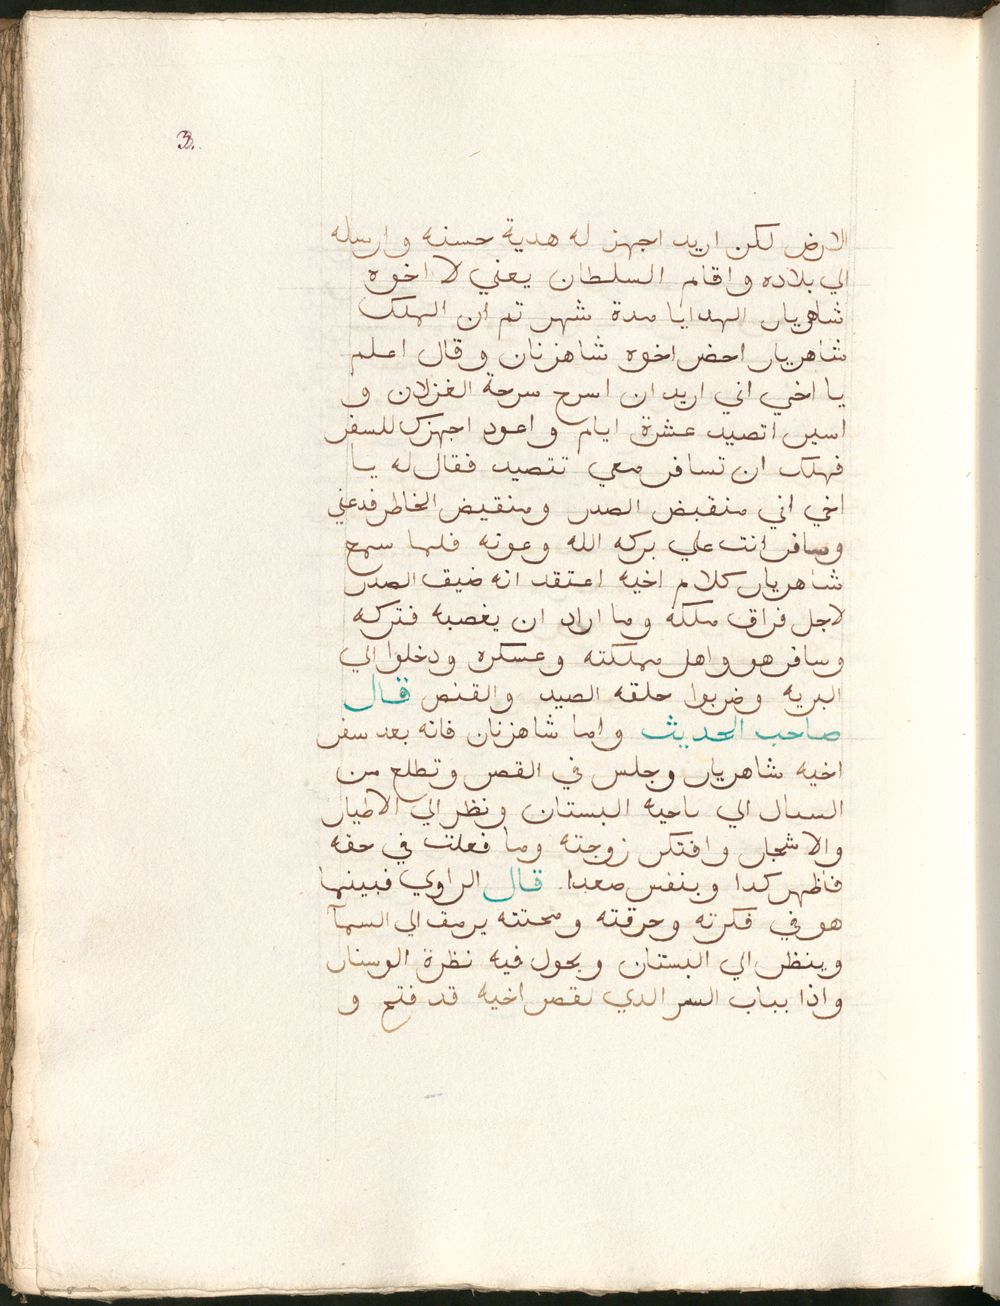 3.
الارض لكن اريد اجهز له هدية حسنه وارسله
الي بلاده واقام السلطان يعني لا اخوه
شاهريار الهدايا مدة شهر تم ان الملك
شاهريار احض اخوه شاهزنان وقال اعلم
يا اخي اني اريد ان اسرح سرحة الغزلان و
اسير اتصيد عشرة ايام واعود اجهزك للسفر
فهلك ان تسافر معي تتصيد فقال له يا
اخي اني منقبض الصدر ومنقيض الخاطر فدعني
وسافر انت علي بركه الله وعونه فلما سمع
شاهريار كلام اخيه اعتقد انه ضيق الصدر
لاجل فراق ملكه وما اراد ان يغصبه فتركه
وسافر هو واهل مملكته وعسكره ودخلوا الي
البريه وضربوا حلقه الصيد والقنص قال
صاحب الحديث واما شاهزنان فانه بعد سفر
اخيه شاهريار وجلس في القصر وتطلع من
الي ناحيه البستان ونظر الي الاطيار
والاشجار وافتكر زوجته وما فعلت في حقه
فاظهر كدا وبنفس صعدا. قال الراوي فبينما
هو في فكرته وحرقته ومحنته يرمق الي السمآ
وينظر الي البستان ويحول فيه نظرة الوسنان
واذا بباب السر الدي لقصر اخيه قد فتح و